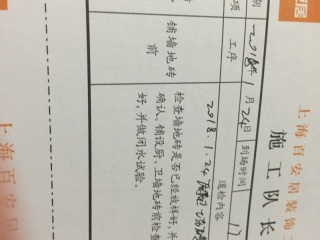 居
上海百安居装饰工
施工队长
别
2018年1月24日
到场时间
项
工序
巡检内容
铺墙地砖
前
2018.1.24
检查墙地砖是否已经放样好,并
确认、铺设厨、卫墙地砖前检查
好,并做闭水试验。
上海百安